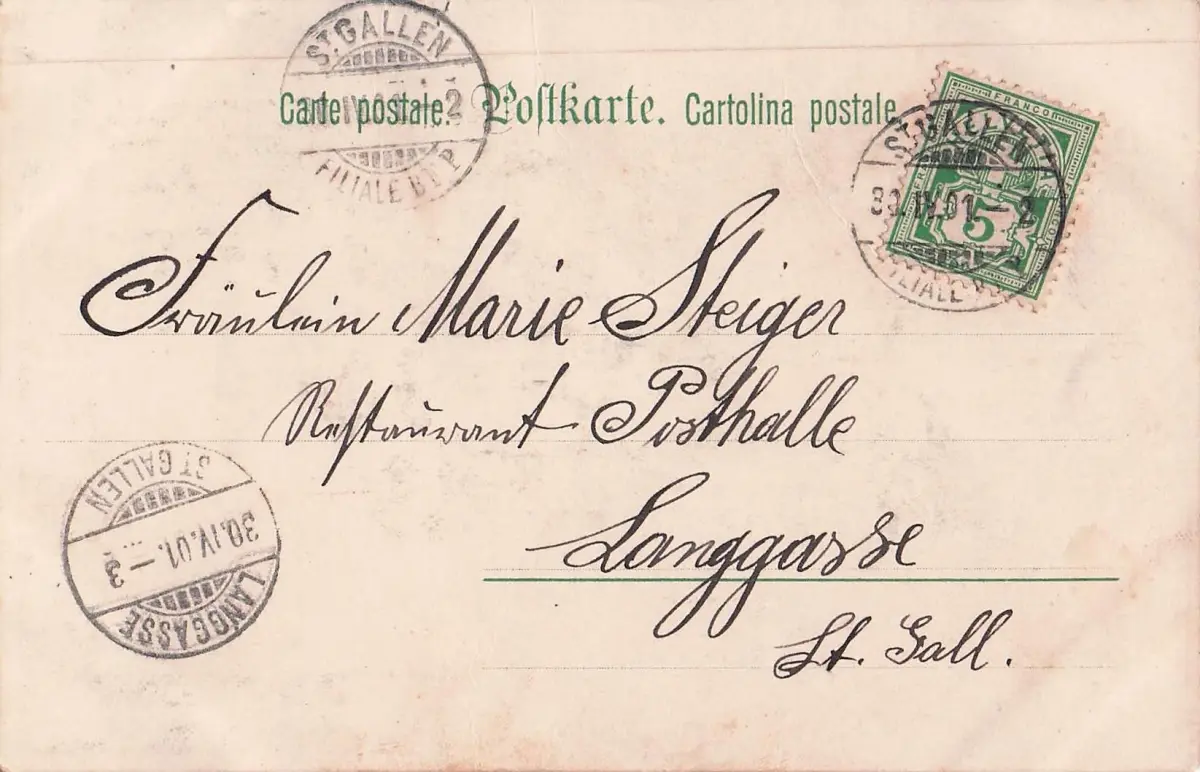 ST. GALLEN
FILIALE
Carte postale. Postkarte. Cartolina postale.
FRANCO
5
ST. GALLEN
30.IV.01.–2
FILIALE
Fräulein Marie Steiger
Restaurant Posthalle
Langgasse
St. Gall.
ST. GALLEN
30.IV.01.–3
LANGGASSE